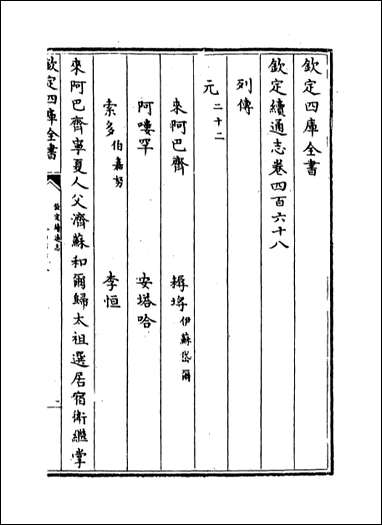 欽定四庫全書
欽定續通志卷四百六十八
列傳
元二十二
來阿巴齊 耨埒伊蘇岱爾
阿嘍罕 安塔哈
索多伯嘉努 李恒
來阿巴齊寧夏人父濟蘇和爾歸太祖選居宿衛繼掌
欽定四庫全書